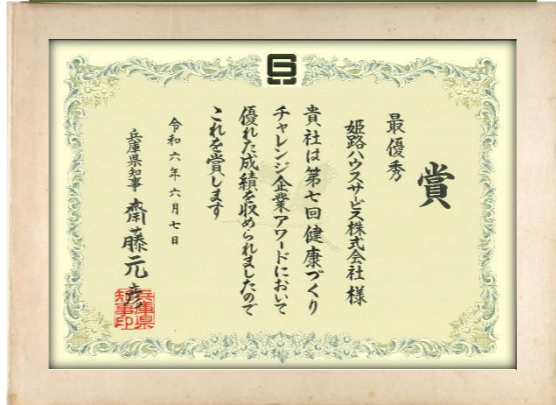 賞
最優秀
姫路ハウスサービス株式会社 様
貴社は第七回健康づくり
チャレンジ企業アワードにおいて
優れた成績を収められましたので
これを賞します
令和六年六月七日
兵庫県知事 齋藤元彦
兵庫県
知事印